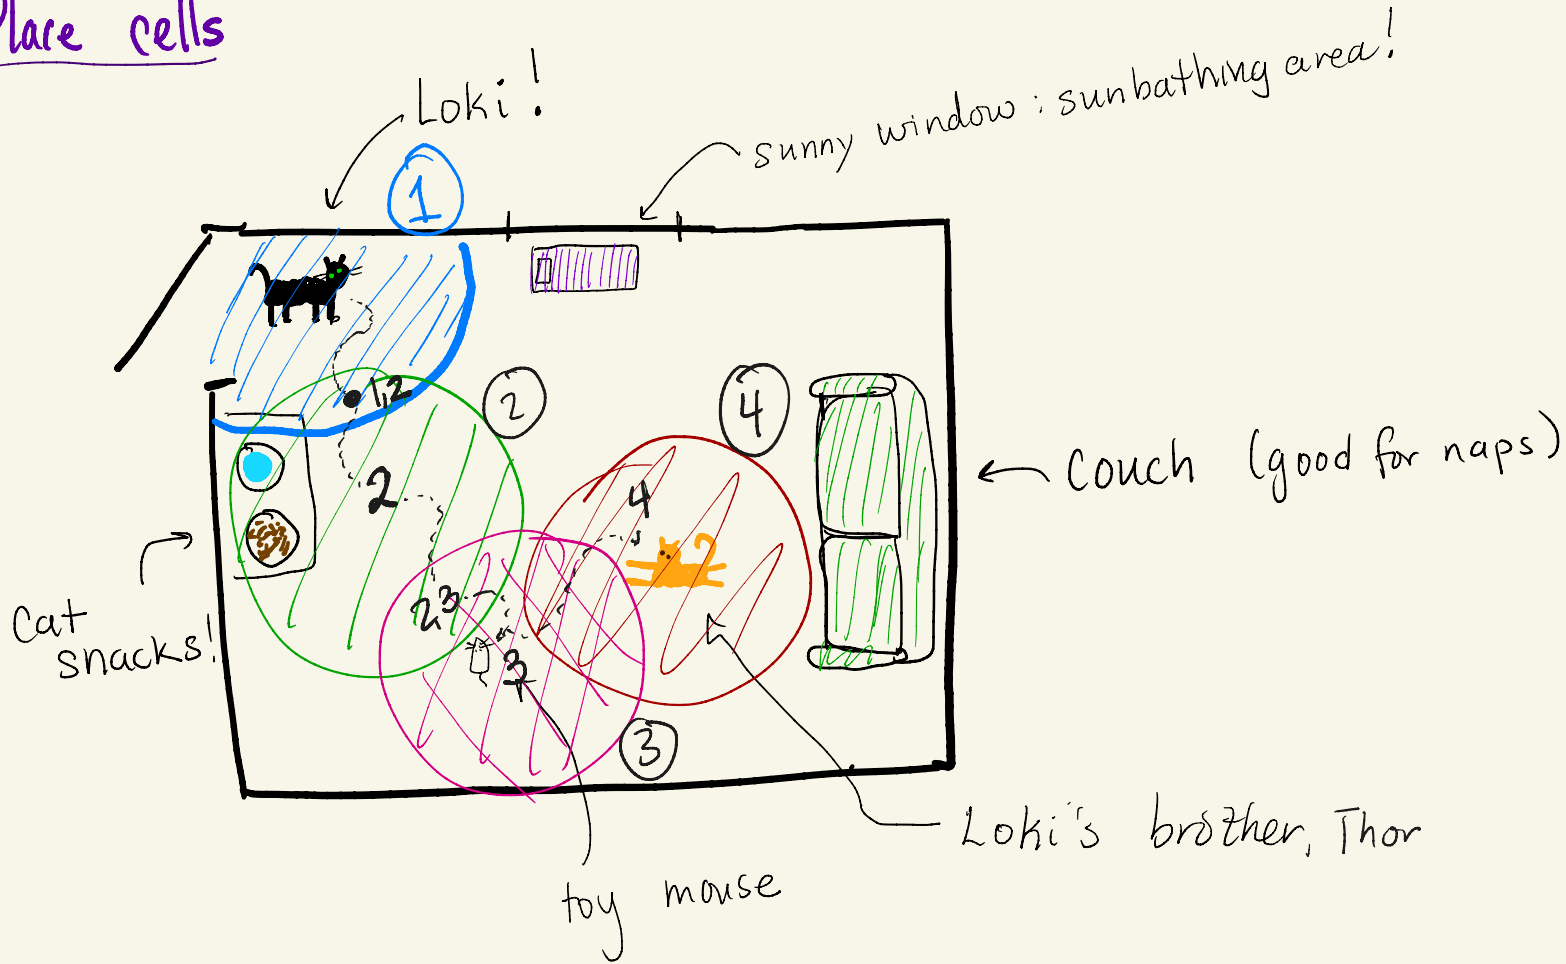 Place cells
Loki!
sunny window: sunbathing area!
1
1,2
2
2
4
4
2,3
3
3
Couch (good for naps)
Cat
snacks!
Loki's brother, Thor
toy mouse